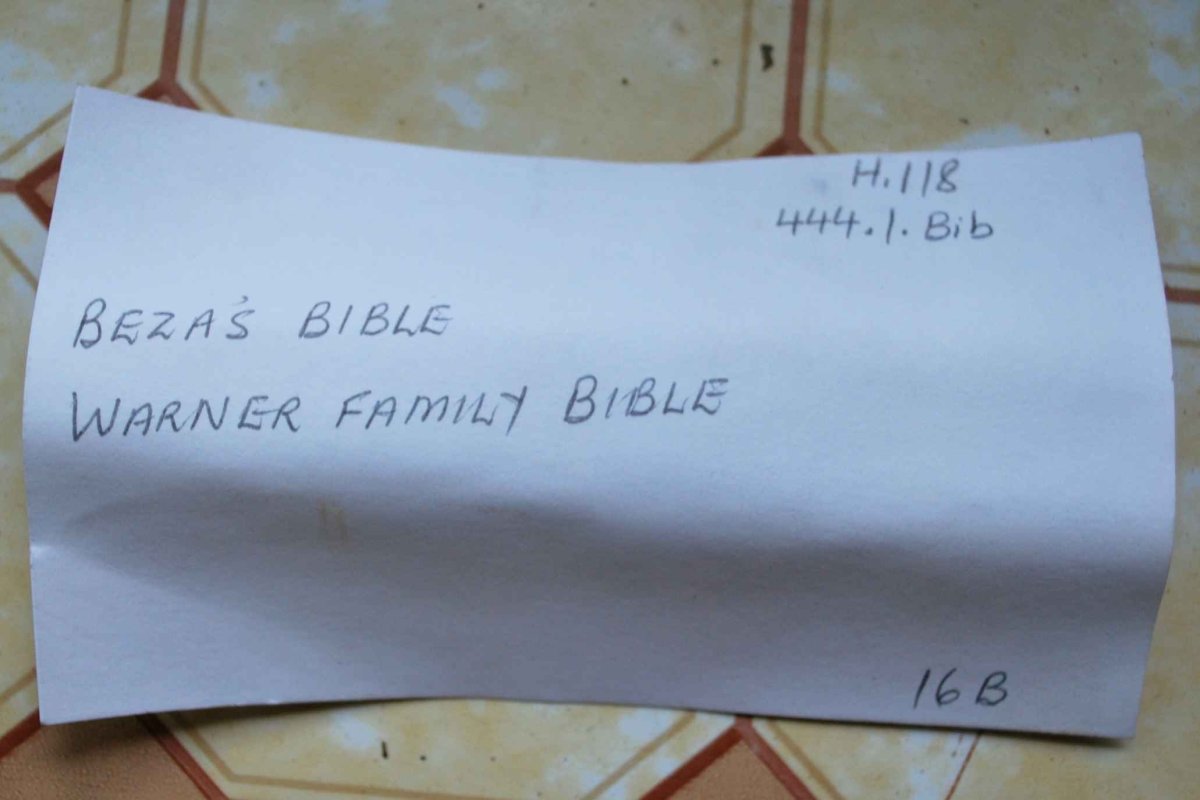 H.118
444.1.Bib
BEZA'S BIBLE
WARNER FAMILY BIBLE
16B